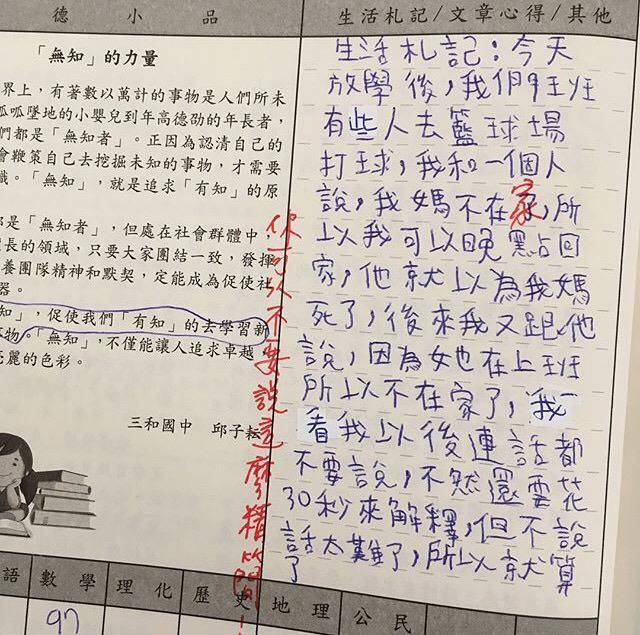 德 小 品
生活札記/文章心得/其他
「無知」的力量
界上，有著數以萬計的事物是人們所未
呱呱墜地的小嬰兒到年高德劭的年長者，
們都是「無知者」。正因為認清自己的
會鞭策自己去挖掘未知的事物，才需要
識。「無知」，就是追求「有知」的原
都是「無知者」，但處在社會群體中，
擅長的領域，只要大家團結一致，發揮
養團隊精神和默契，定能成為促使社
器。
知」，促使我們「有知」的去學習新
事物。「無知」，不僅能讓人追求卓越
亮麗的色彩。
三和國中 邱子耘
生活札記：今天
放學後，我們班
有些人去籃球場
打球，我和一個人
說，我媽不在家，所
以我可以晚點回
家，他就以為我媽
死了，後來我又跟他
說，因為她在上班
所以不在家了，我
看我以後連話都
不要說，不然還要花
30秒來解釋，但不說
話太難了，所以就算
了
你可以不要說這麼精簡！
語 數學 理化 歷史 地理 公民
97